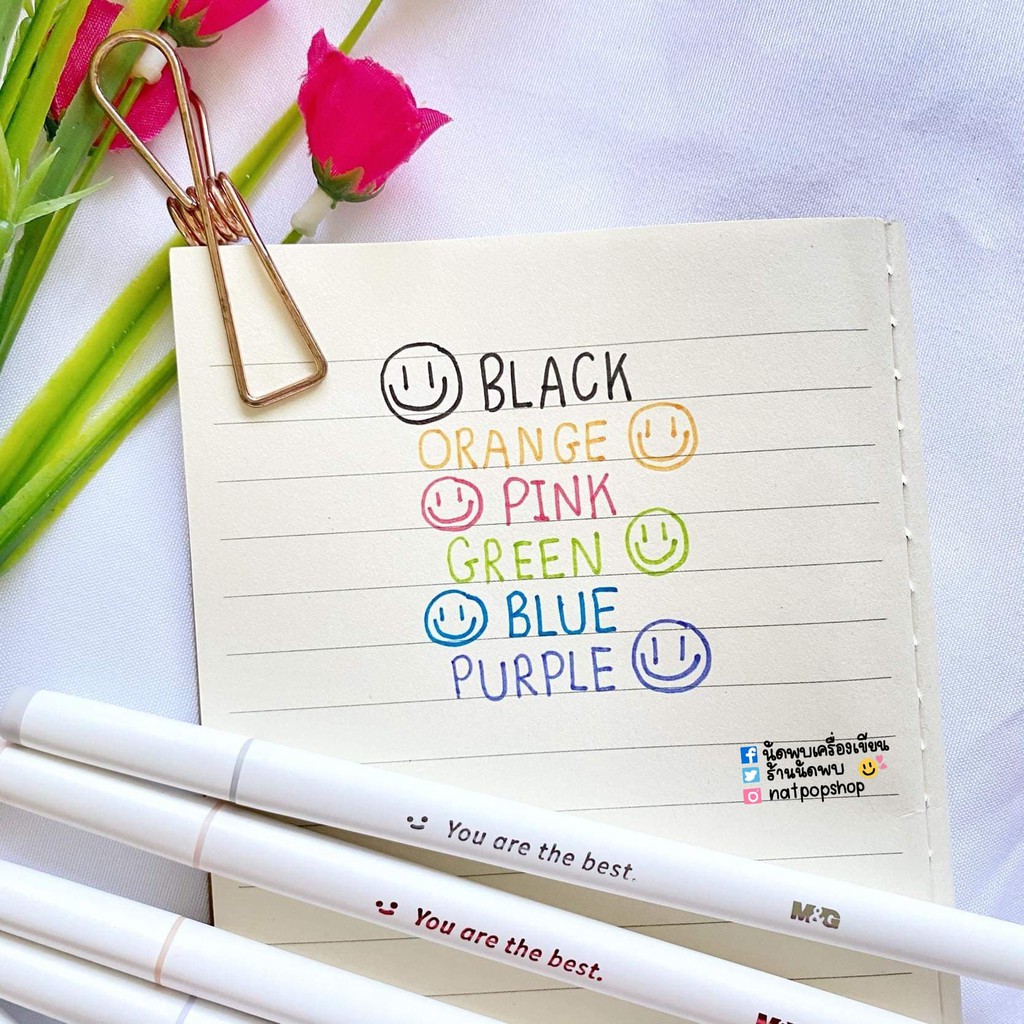 BLACK
ORANGE
PINK
GREEN
BLUE
PURPLE
นัดพบเครื่องเขียน
ร้านนัดพบ
natpopshop
You are the best.
M&G
You are the best.